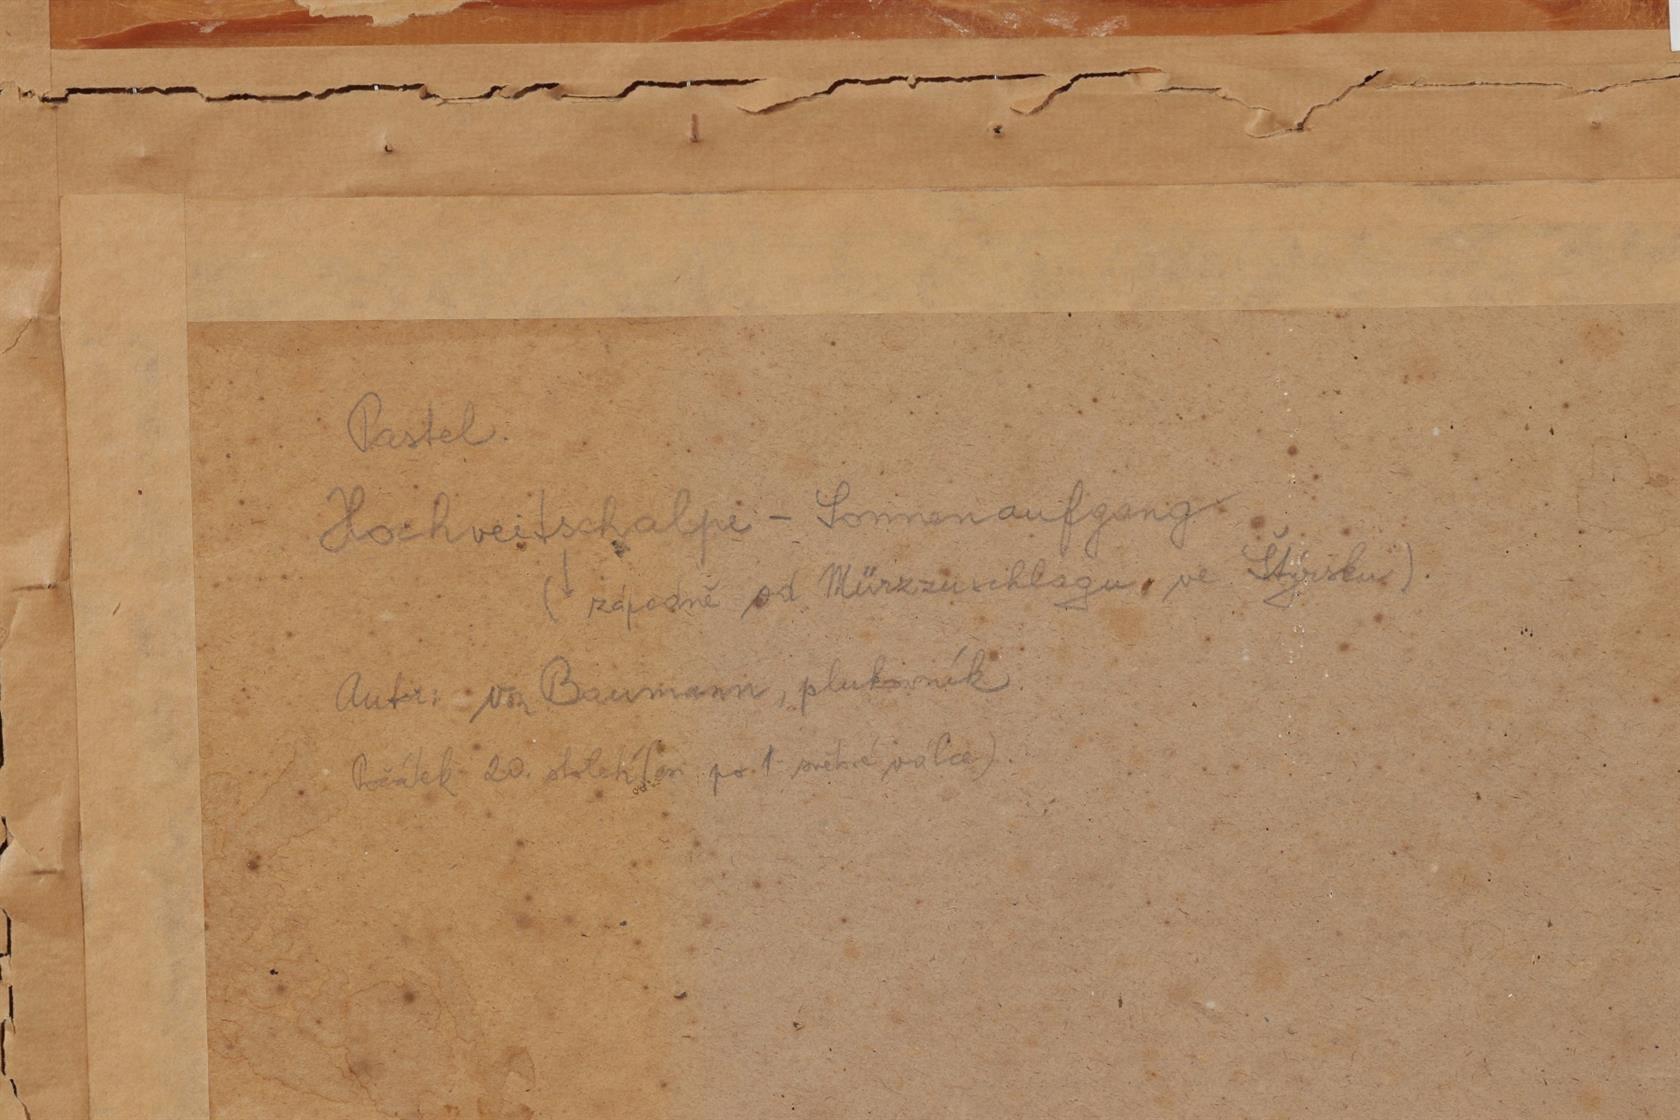 Pastel.
Hochveitschalpe - Sonnenaufgang
(↓ západně od Mürzzuschlagu, ve Štýrsku).
Autor: von Baumann, plukovník.
Počátek 20. století (po 1 světové válce).